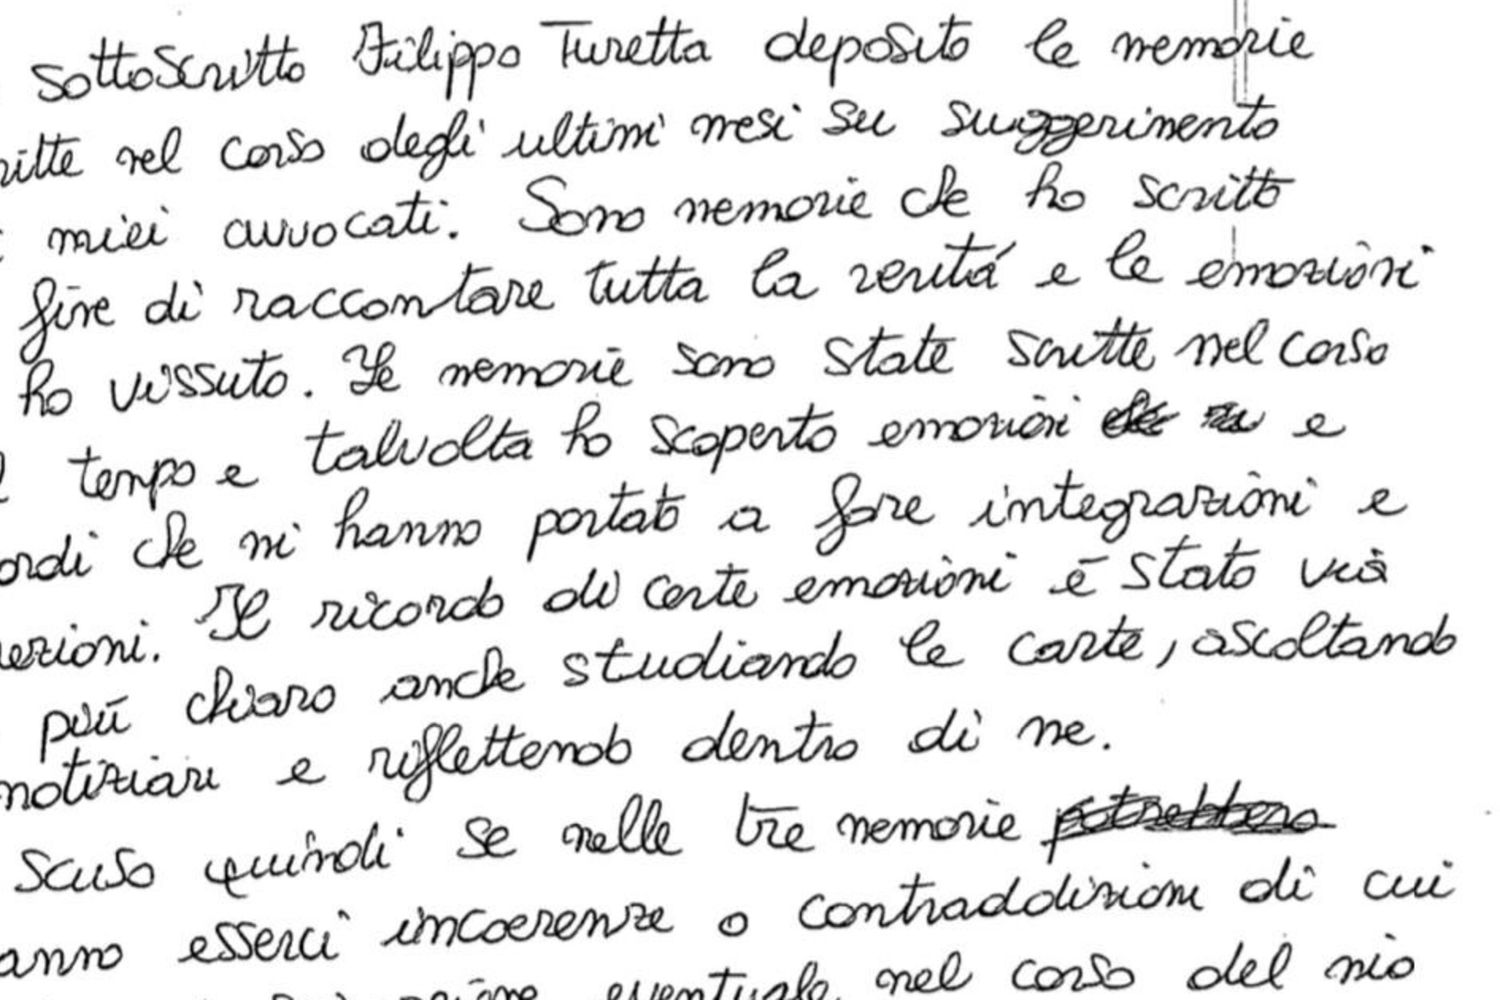 sottoscritto Filippo Turetta deposito le memorie
ritte nel corso degli ultimi mesi su suggerimento
miei avvocati. Sono memorie che ho scritto
fine di raccontare tutta la verità e le emozioni
ho vissuto. Le memorie sono state scritte nel corso
tempo e talvolta ho scoperto emozioni e
ordi che mi hanno portato a fare integrazioni e
rezioni. Il ricordo di certe emozioni è stato via
più chiaro anche studiando le carte, ascoltando
notiziari e riflettendo dentro di me.
scuso quindi se nelle tre memorie potrebbero
anno esserci incoerenze o contraddizioni di cui
eventuale nel corso del mio